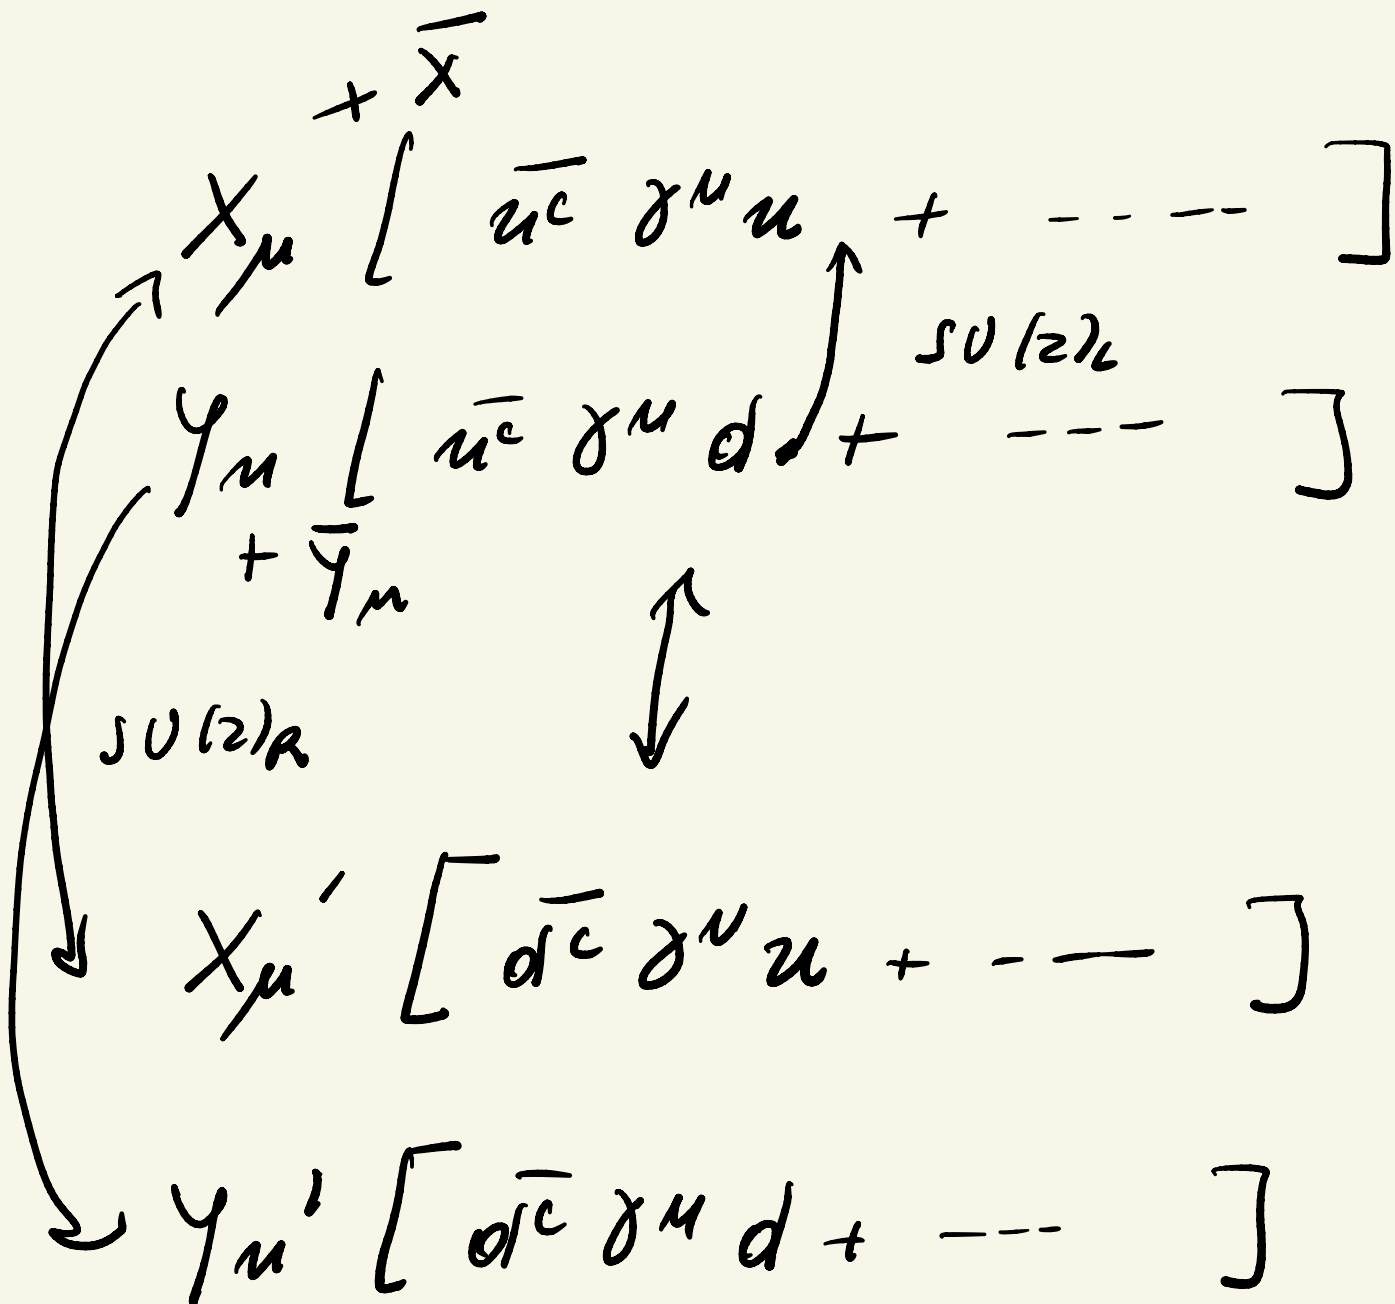 + X̅
X_μ [ \overline{u^c} γ^μ u + - - - - ]
SU(2)_L
Y_μ [ \overline{u^c} γ^μ d + - - - ]
+ Y̅_μ
SU(2)_R
X_μ' [ \overline{d^c} γ^μ u + - - ]
Y_μ' [ \overline{d^c} γ^μ d + - - - ]